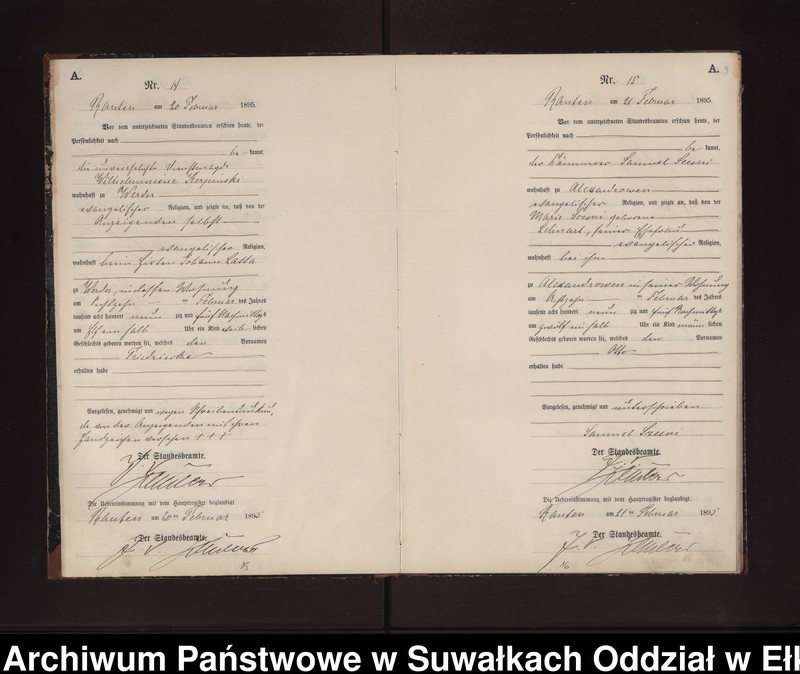 A.
Nr. 14
Ranten am 20 Februar 1895.
Vor dem unterzeichneten Standesbeamten erschien heute, der
Persönlichkeit nach
be kannt,
die unverehelichte Dienstmagd
Wilhelmine
wohnhaft zu Werder
evangelischer Religion, und zeigte an, daß von der
Anzeigenden selbst
evangelischer Religion,
wohnhaft beim Hirten Johann Latta
zu Werder, in dessen Wohnung
am Februar des Jahres
tausend acht hundert neun zig und fünf Nachmittags
um ein halb Uhr ein Kind weib lichen
Geschlechts geboren worden sei, welches den Vornamen
Friedericke
erhalten habe
Vorgelesen, genehmigt und wegen Schreibensunkun
de von der Anzeigenden mit ihren
Handzeichen versehen + + +
Der Standesbeamte.
Die Uebereinstimmung mit dem Hauptregister beglaubigt.
Ranten am 20ten Februar 1895
Der Standesbeamte.
J. V.
A.
Nr. 15
Ranten am 21 Februar 1895.
Vor dem unterzeichneten Standesbeamten erschien heute, der
Persönlichkeit nach
be kannt,
der Kämmerer Samuel Sczesni
wohnhaft zu Alexandrowen
evangelischer Religion, und zeigte an, daß von der
Marie Sczesni geborene
seiner Ehefrau
evangelischer Religion,
wohnhaft bei ihm
zu Alexandrowen in seiner Wohnung
am Februar des Jahres
tausend acht hundert neun zig und fünf Nachmittags
um zwölf ein halb Uhr ein Kind männ lichen
Geschlechts geboren worden sei, welches den Vornamen
Otto
erhalten habe
Vorgelesen, genehmigt und unterschrieben
Samuel Sczesni
Der Standesbeamte.
Die Uebereinstimmung mit dem Hauptregister beglaubigt.
Ranten am 21ten Februar 1895
Der Standesbeamte.
J. V.
Archiwum Państwowe w Suwałkach Oddział w Ełk